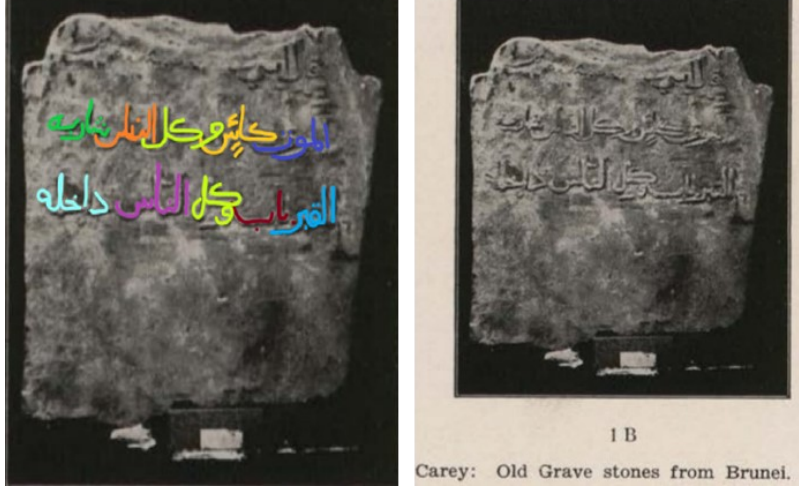 الموت كائس وكل الناس شاربه
القبر باب وكل الناس داخله
1 B
Carey: Old Grave stones from Brunei.